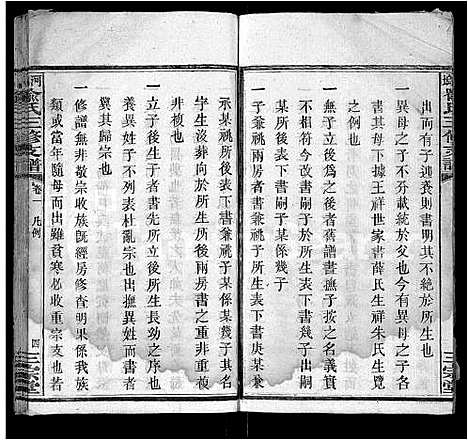 出而有子迎養則書明其不忘所生也
一異母之子不分載統於父也若子於各母之名
直書母下據王祥世家書薛氏生祥朱氏生覽
一子立後爲之後者舊譜書撫子嗣子義子之名
不相符今改書撫子某於所生表下書幾子出嗣
某於所後表下書嗣子某係某幾子
一子兼祧者於所生表下書幾子某兼祧某
承某祧所後表下書兼祧子某係某幾子其名
字生沒葬向於所生書之於兩房書之重非重複
非棱也
一立子後生子者書先所立後所生長幼之
也一撫異姓子不列表杜亂宗也出撫異姓而
冀其歸宗也
一修譜無非敬宗收族既經房修查明果係我族
類或當年隨母而出雖貧寒必收重宗支也若
俞氏三修支譜
卷一 凡例
四
三宗堂